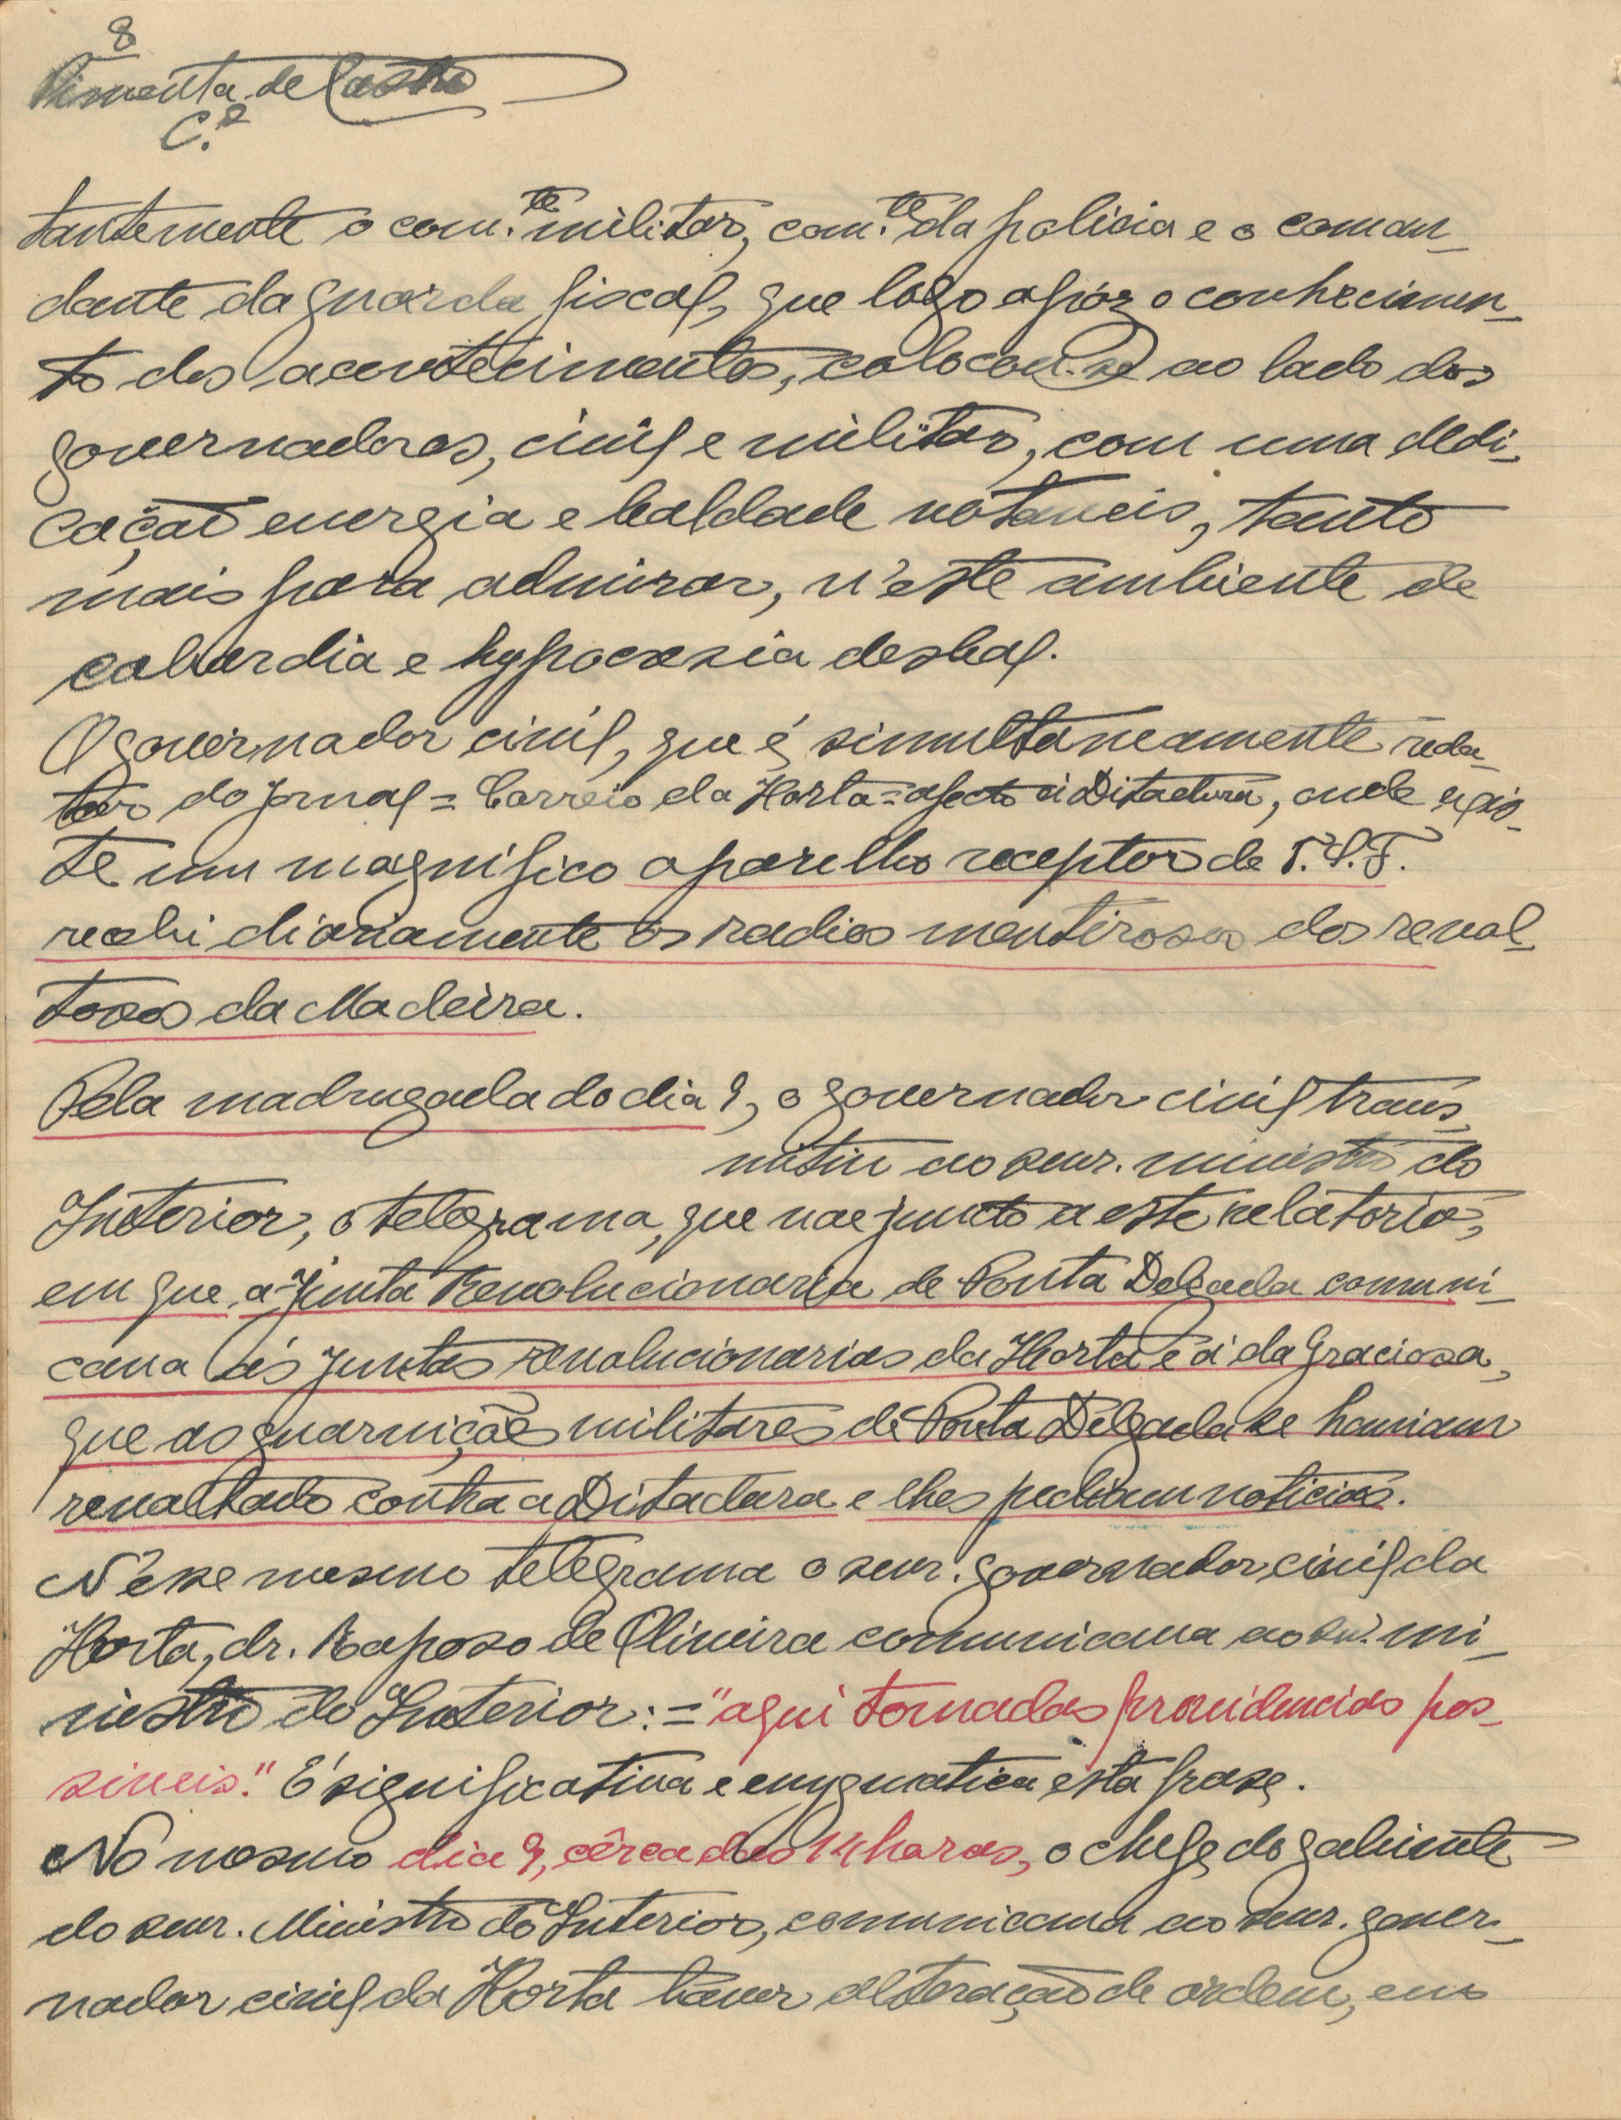 8
Pimenta de Castro
C.e
tantemente o com.te militar, com.te da policia e o coman_
dante da guarda fiscal, que logo apóz o conhecimen_
to dos acontecimentos, colocou-se ao lado dos
governadores, civil e militar, com uma dedi_
cação energia e lealdade notaveis, tanto
mais para admirar, n'este ambiente de
cobardia e hypocresia desleal.
O governador civil, que é simultaneamente reda_
tor do jornal = Correio da Horta = afecto á Ditadura, onde exis_
te um magnifico aparelho receptor de T.S.F.
recebi diariamente os radios mentirosos dos revol_
tosos da Madeira.
Pela madrugada do dia 9, o governador civil trans_
mitiu ao senr. ministro do
Interior, o telegrama, que vae juncto a este relatorio,
em que a Junta Revolucionaria de Ponta Delgada comuni_
cava ás juntas revolucionarias da Horta e á da Graciosa,
que as guarnições militares de Ponta Delgada se haviam
revoltado contra a Ditadura e lhes pediam noticias.
N'esse mesmo telegrama o senr. governador civil da
Horta, dr. Raposo de Oliveira comunicava ao snr. mi_
nistro do Interior: = "aqui tomadas providencias pos_
siveis." É significativa e enygmatica esta frase.
No mesmo dia 9, cêrca das 14 horas, o chefe do gabinete
do senr. Ministro do Interior, comunicava ao senr. gover_
nador civil da Horta haver alteração de ordem, em